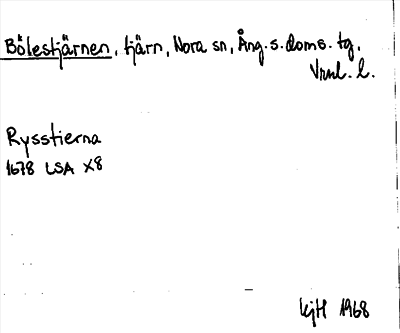 Bölestjärnen, tjärn, Nora sn, Ång. s. doms. tg.
Vnrl. l.
Rysstierna
1678 LSA X8
KjH 1968